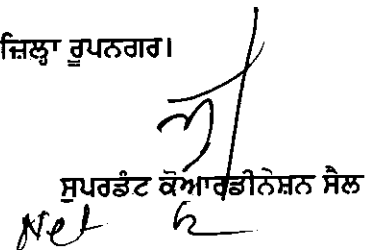 ਜ਼ਿਲ੍ਹਾ ਰੂਪਨਗਰ।
ਸੁਪਰਡੰਟ ਕੋਆਰਡੀਨੇਸ਼ਨ ਸੈਲ
Net